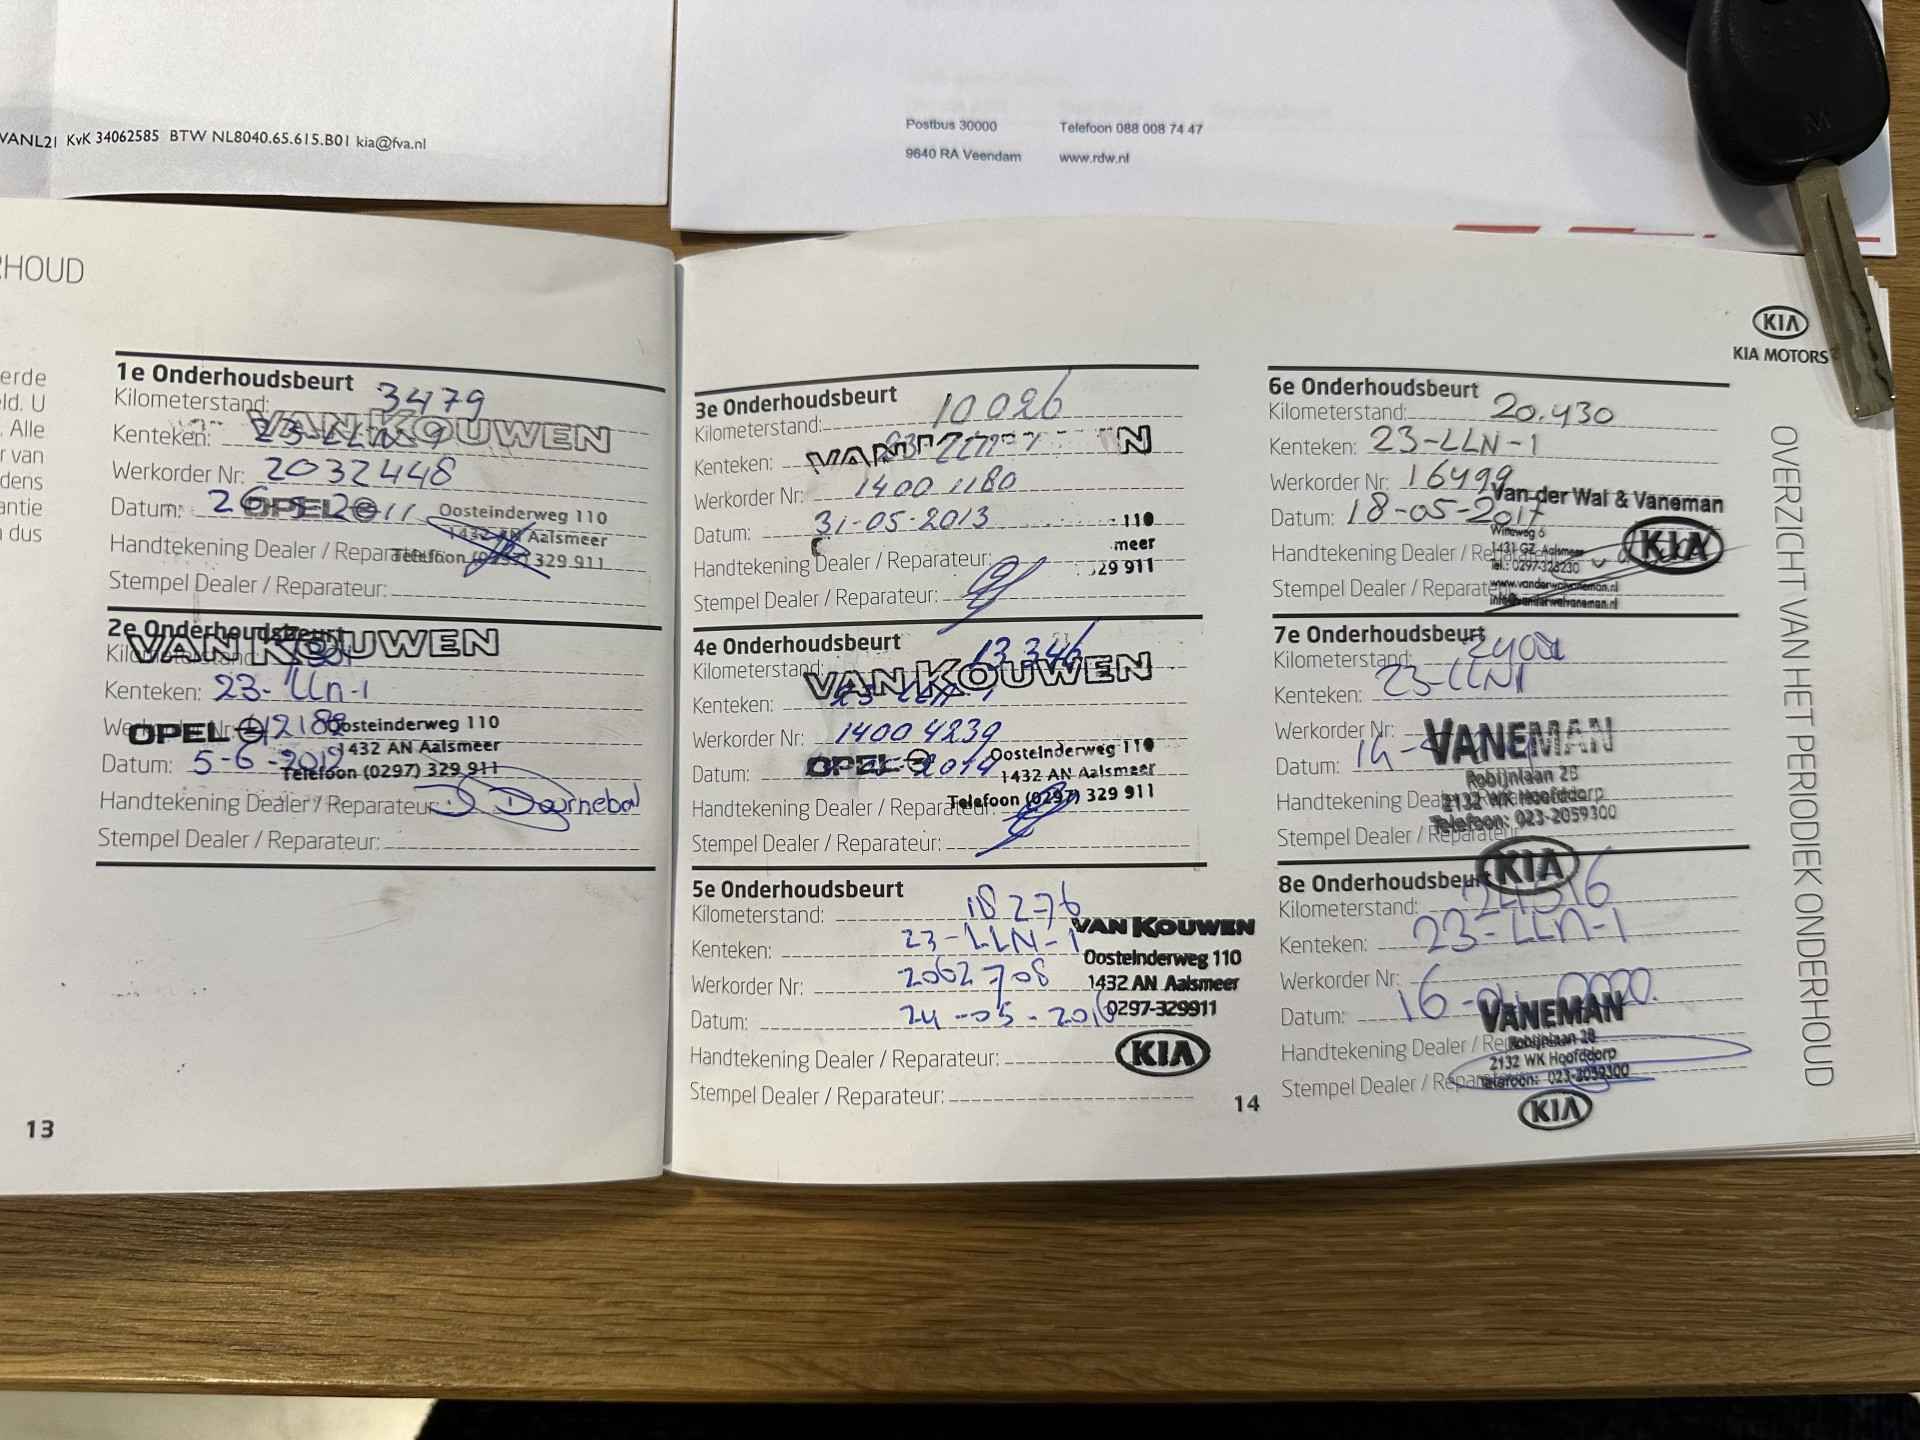 VANL21 KvK 34062585 BTW NL8040.65.615.B01 kia@fva.nl
Postbus 30000 Telefoon 088 008 74 47
9640 RA Veendam www.rdw.nl
M
RHOUD
erde
eld. U
. Alle
r van
dens
antie
n dus
1e Onderhoudsbeurt
Kilometerstand: 3479
VAN KOUWEN
Kenteken:
Werkorder Nr: 2032448
Datum: 26-5-2011
OPEL
Oosteinderweg 110
1432 AN Aalsmeer
Handtekening Dealer / Reparateur:
Telefoon (0297) 329 911
Stempel Dealer / Reparateur:
2e Onderhoudsbeurt
VAN KOUWEN
Kilometerstand:
Kenteken: 23-LLn-1
Werkorder Nr:
OPEL
Oosteinderweg 110
1432 AN Aalsmeer
Datum: 5-6-2012
Telefoon (0297) 329 911
Handtekening Dealer / Reparateur:
Stempel Dealer / Reparateur:
13
3e Onderhoudsbeurt
Kilometerstand: 10026
Kenteken:
Werkorder Nr: 1400 1180
Datum: 31-05-2013
110
meer
Handtekening Dealer / Reparateur:
29 911
Stempel Dealer / Reparateur:
4e Onderhoudsbeurt
Kilometerstand: 13346
VAN KOUWEN
Kenteken: 23-LLN-1
Werkorder Nr: 1400 4239
OPEL
Oosteinderweg 110
Datum: 2014
1432 AN Aalsmeer
Telefoon (0297) 329 911
Handtekening Dealer / Reparateur:
Stempel Dealer / Reparateur:
5e Onderhoudsbeurt
Kilometerstand: 18276
VAN KOUWEN
Kenteken: 23-LLN-1
Oosteinderweg 110
Werkorder Nr: 2062708
1432 AN Aalsmeer
Datum: 24-05-2016
0297-329911
Handtekening Dealer / Reparateur:
KIA
Stempel Dealer / Reparateur:
14
KIA
KIA MOTORS
6e Onderhoudsbeurt
Kilometerstand: 20.430
Kenteken: 23-LLN-1
Werkorder Nr: 16499
Van der Wal & Vaneman
Datum: 18-05-2017
1431 GZ Aalsmeer
Handtekening Dealer / Reparateur:
Tel.: 0297-328230
KIA
www.vanderwalvaneman.nl
Stempel Dealer / Reparateur:
info@vanderwalvaneman.nl
7e Onderhoudsbeurt
Kilometerstand:
Kenteken: 23-LLN1
Werkorder Nr:
VANEMAN
Datum:
Robijnlaan 28
2132 WK Hoofddorp
Handtekening Dealer / Reparateur:
Telefoon: 023-2059300
Stempel Dealer / Reparateur:
KIA
8e Onderhoudsbeurt
Kilometerstand:
Kenteken: 23-LLN-1
Werkorder Nr:
Datum:
VANEMAN
Robijnlaan 28
Handtekening Dealer / Reparateur:
2132 WK Hoofddorp
Telefoon: 023-2059300
Stempel Dealer / Reparateur:
KIA
OVERZICHT VAN HET PERIODIEK ONDERHOUD